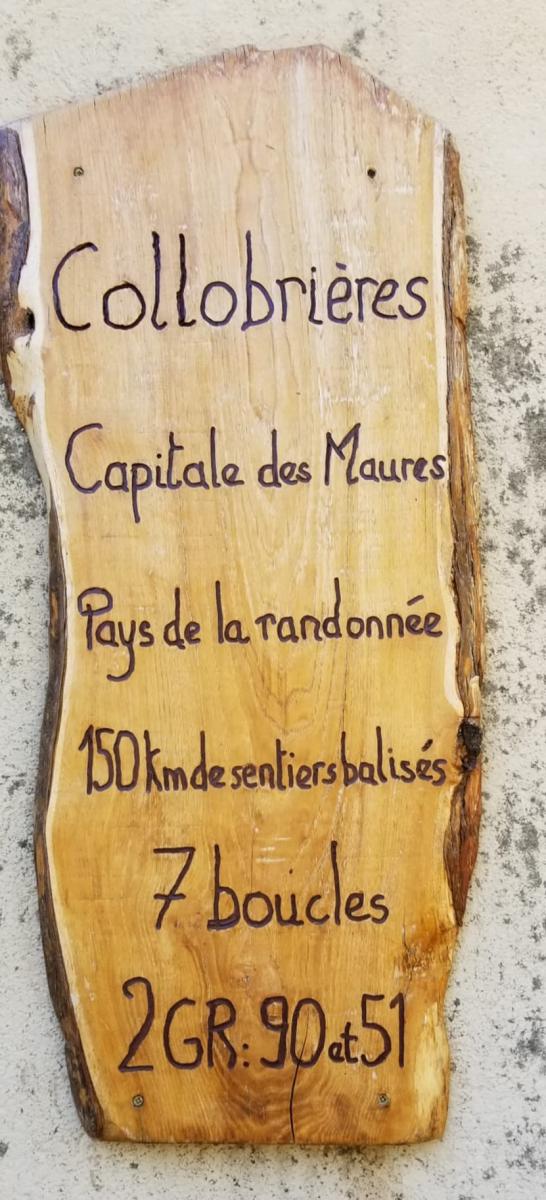 Collobrières
Capitale des Maures
Pays de la randonnée
150 km de sentiers balisés
7 boucles
2 GR: 90 et 51